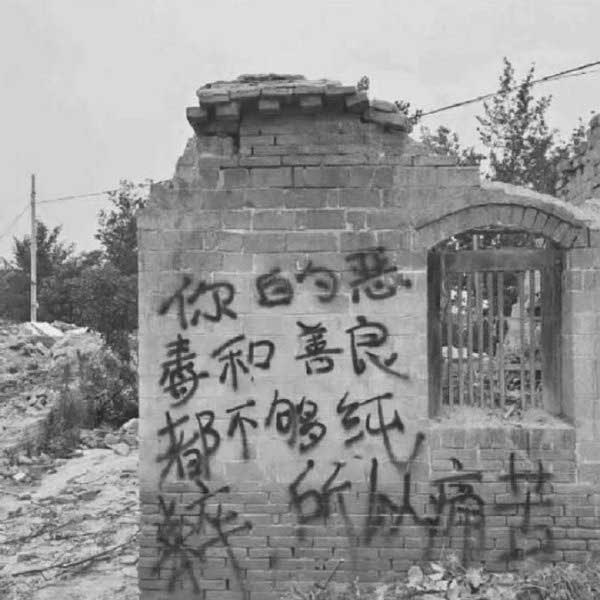 你的恶
毒和善良
都不够纯
粹所以痛苦